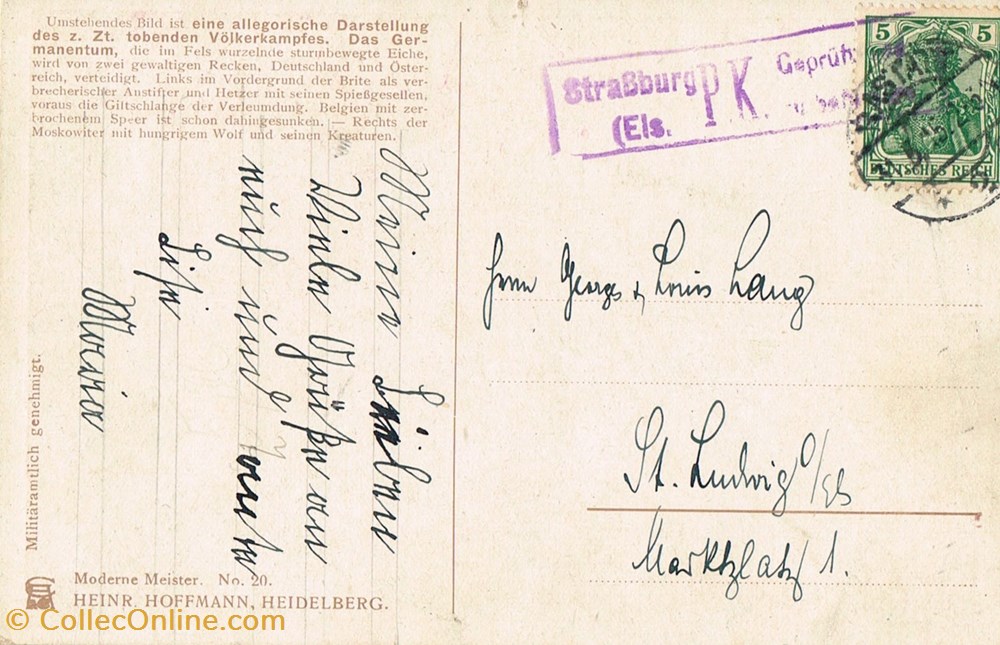 Umstehendes Bild ist eine allegorische Darstellung
des z. Zt. tobenden Völkerkampfes. Das Ger-
manentum, die im Fels wurzelnde sturmbewegte Eiche,
wird von zwei gewaltigen Recken, Deutschland und Öster-
reich, verteidigt. Links im Vordergrund der Brite als ver-
brecherischer Anstifter und Hetzer mit seinen Spießgesellen,
voraus die Giftschlange der Verleumdung. Belgien mit zer-
brochenem Speer ist schon dahingesunken. — Rechts der
Moskowiter mit hungrigem Wolf und seinen Kreaturen.
Meine Lieben
Viele Grüße an
euch und
Marie
Militäramtlich genehmigt.
Moderne Meister. No. 20.
HEINR. HOFFMANN, HEIDELBERG.
Straßburg
(Els.
P.K.
Geprüft
5 5
DEUTSCHES REICH
Herrn Georges & Louis Lang
St. Ludwig O/Els
Marktplatz 1.
© CollecOnline.com